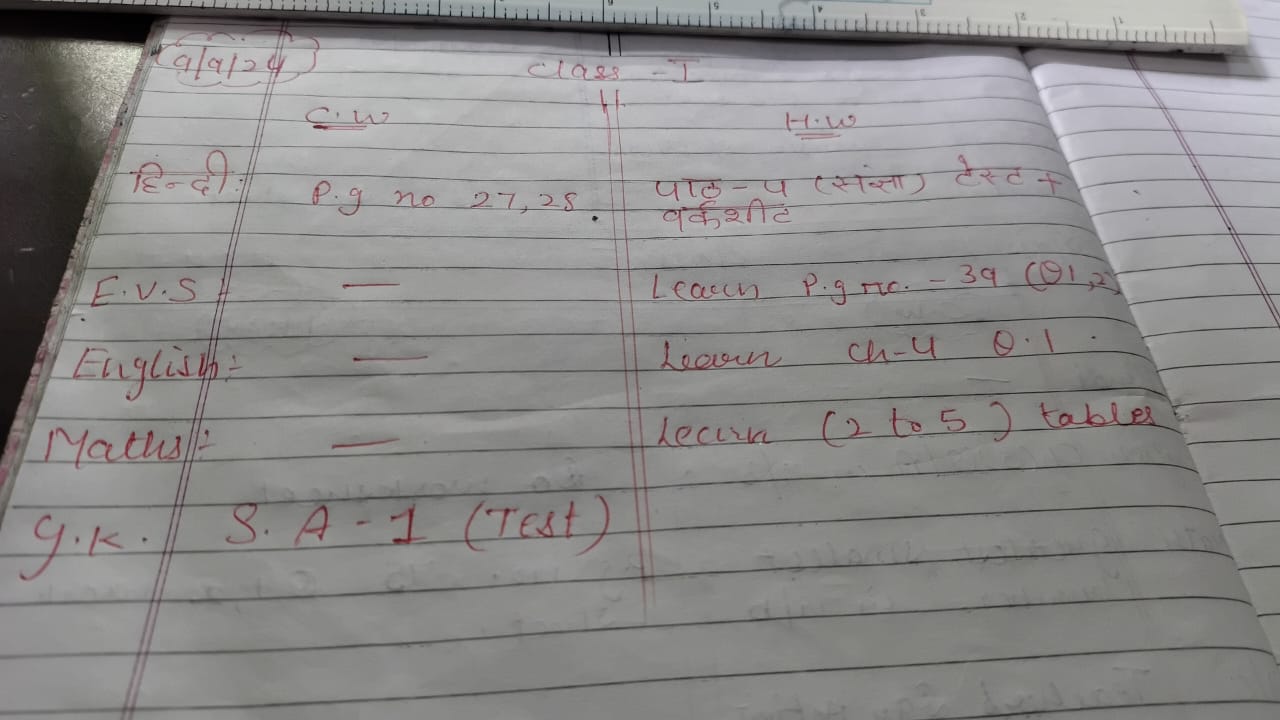 9/9/24
Class - I
C.W H.W
हिन्दी:- P.g no 27,28. पाठ - ५ (संज्ञा) टेस्ट +
वर्कशीट
E.V.S :- — Learn P.g no. - 39 (Q1,2)
English:- — Learn Ch-4 Q.1.
Maths:- — Learn (2 to 5) tables
G.K. S.A-1 (Test)